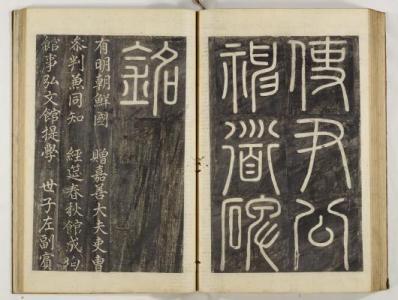 使尹公
神道碑
銘
有明朝鮮國 贈嘉善大夫吏曹
叅判兼同知 經筵春秋館成均
館事弘文館提學 世子左副賓